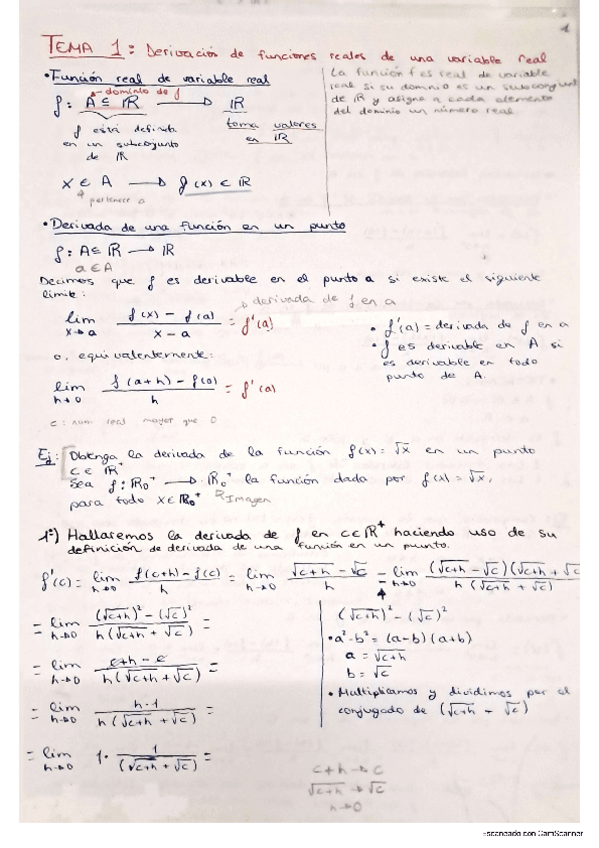 1
TEMA 1: Derivación de funciones reales de una variable real
• Función real de variable real
dominio de f
f: A ⊆ ℝ → ℝ
f está definida
en un subconjunto
de ℝ
toma valores
en ℝ
x ∈ A → f(x) ∈ ℝ
pertenece a
La función f es real de variable
real si su dominio es un subconjunt
de ℝ y asigna a cada elemento
del dominio un número real
• Derivada de una función en un punto
f: A ⊆ ℝ → ℝ
a ∈ A
Decimos que f es derivable en el punto a si existe el siguiente
límite:
derivada de f en a
lim x→a (f(x) - f(a))/(x - a) = f'(a)
o, equivalentemente:
lim h→0 (f(a+h) - f(a))/h = f'(a)
• f'(a) = derivada de f en a
• f es derivable en A si
es derivable en todo
punto de A.
c: num real mayor que 0
Ej: Obtenga la derivada de la función f(x) = √x en un punto
c ∈ ℝ⁺
Sea f: ℝ₀⁺ → ℝ₀⁺ la función dada por f(x) = √x,
para todo x ∈ ℝ₀⁺
Imagen
1º) Hallaremos la derivada de f en c ∈ ℝ⁺ haciendo uso de su
definición de derivada de una función en un punto.
f'(c) = lim h→0 (f(c+h) - f(c))/h = lim h→0 (√(c+h) - √c)/h = lim h→0 ((√(c+h) - √c)(√(c+h) + √c))/(h(√(c+h) + √c))
= lim h→0 ((√(c+h))² - (√c)²)/(h(√(c+h) + √c)) =
= lim h→0 (c+h - c)/(h(√(c+h) + √c)) =
= lim h→0 (h·1)/(h(√(c+h) + √c)) =
= lim h→0 1 · 1/(√(c+h) + √c) =
(√(c+h))² - (√c)²
• a² - b² = (a-b)(a+b)
a = √(c+h)
b = √c
• Multiplicamos y dividimos por el
conjugado de (√(c+h) + √c)
c+h → c
√(c+h) → √c
h→0
Escaneado con CamScanner